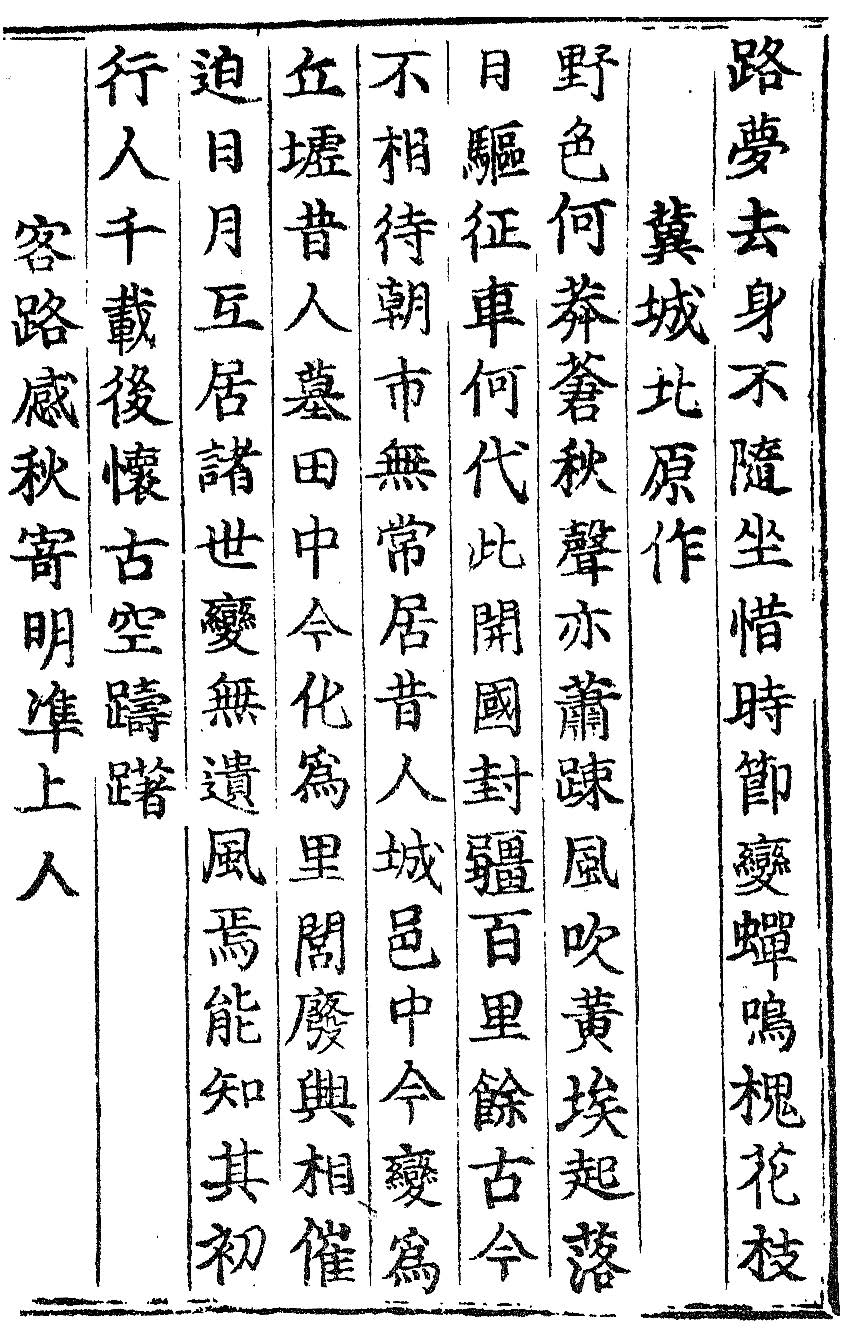 路夢去身不隨坐惜時節變蟬嗚槐花枝
冀城北原作
野色何莽蒼秋聲亦蕭踈風吹黃埃起落
日驅征車何代此開國封疆百里餘古今
不相待朝市無常居昔人城邑中今變爲
丘墟昔人墓田中今化爲里閭廢興相催
迫日月互居諸世變無遺風焉能知其初
行人千載後懷古空躊躇
客路感秋寄明凖上人